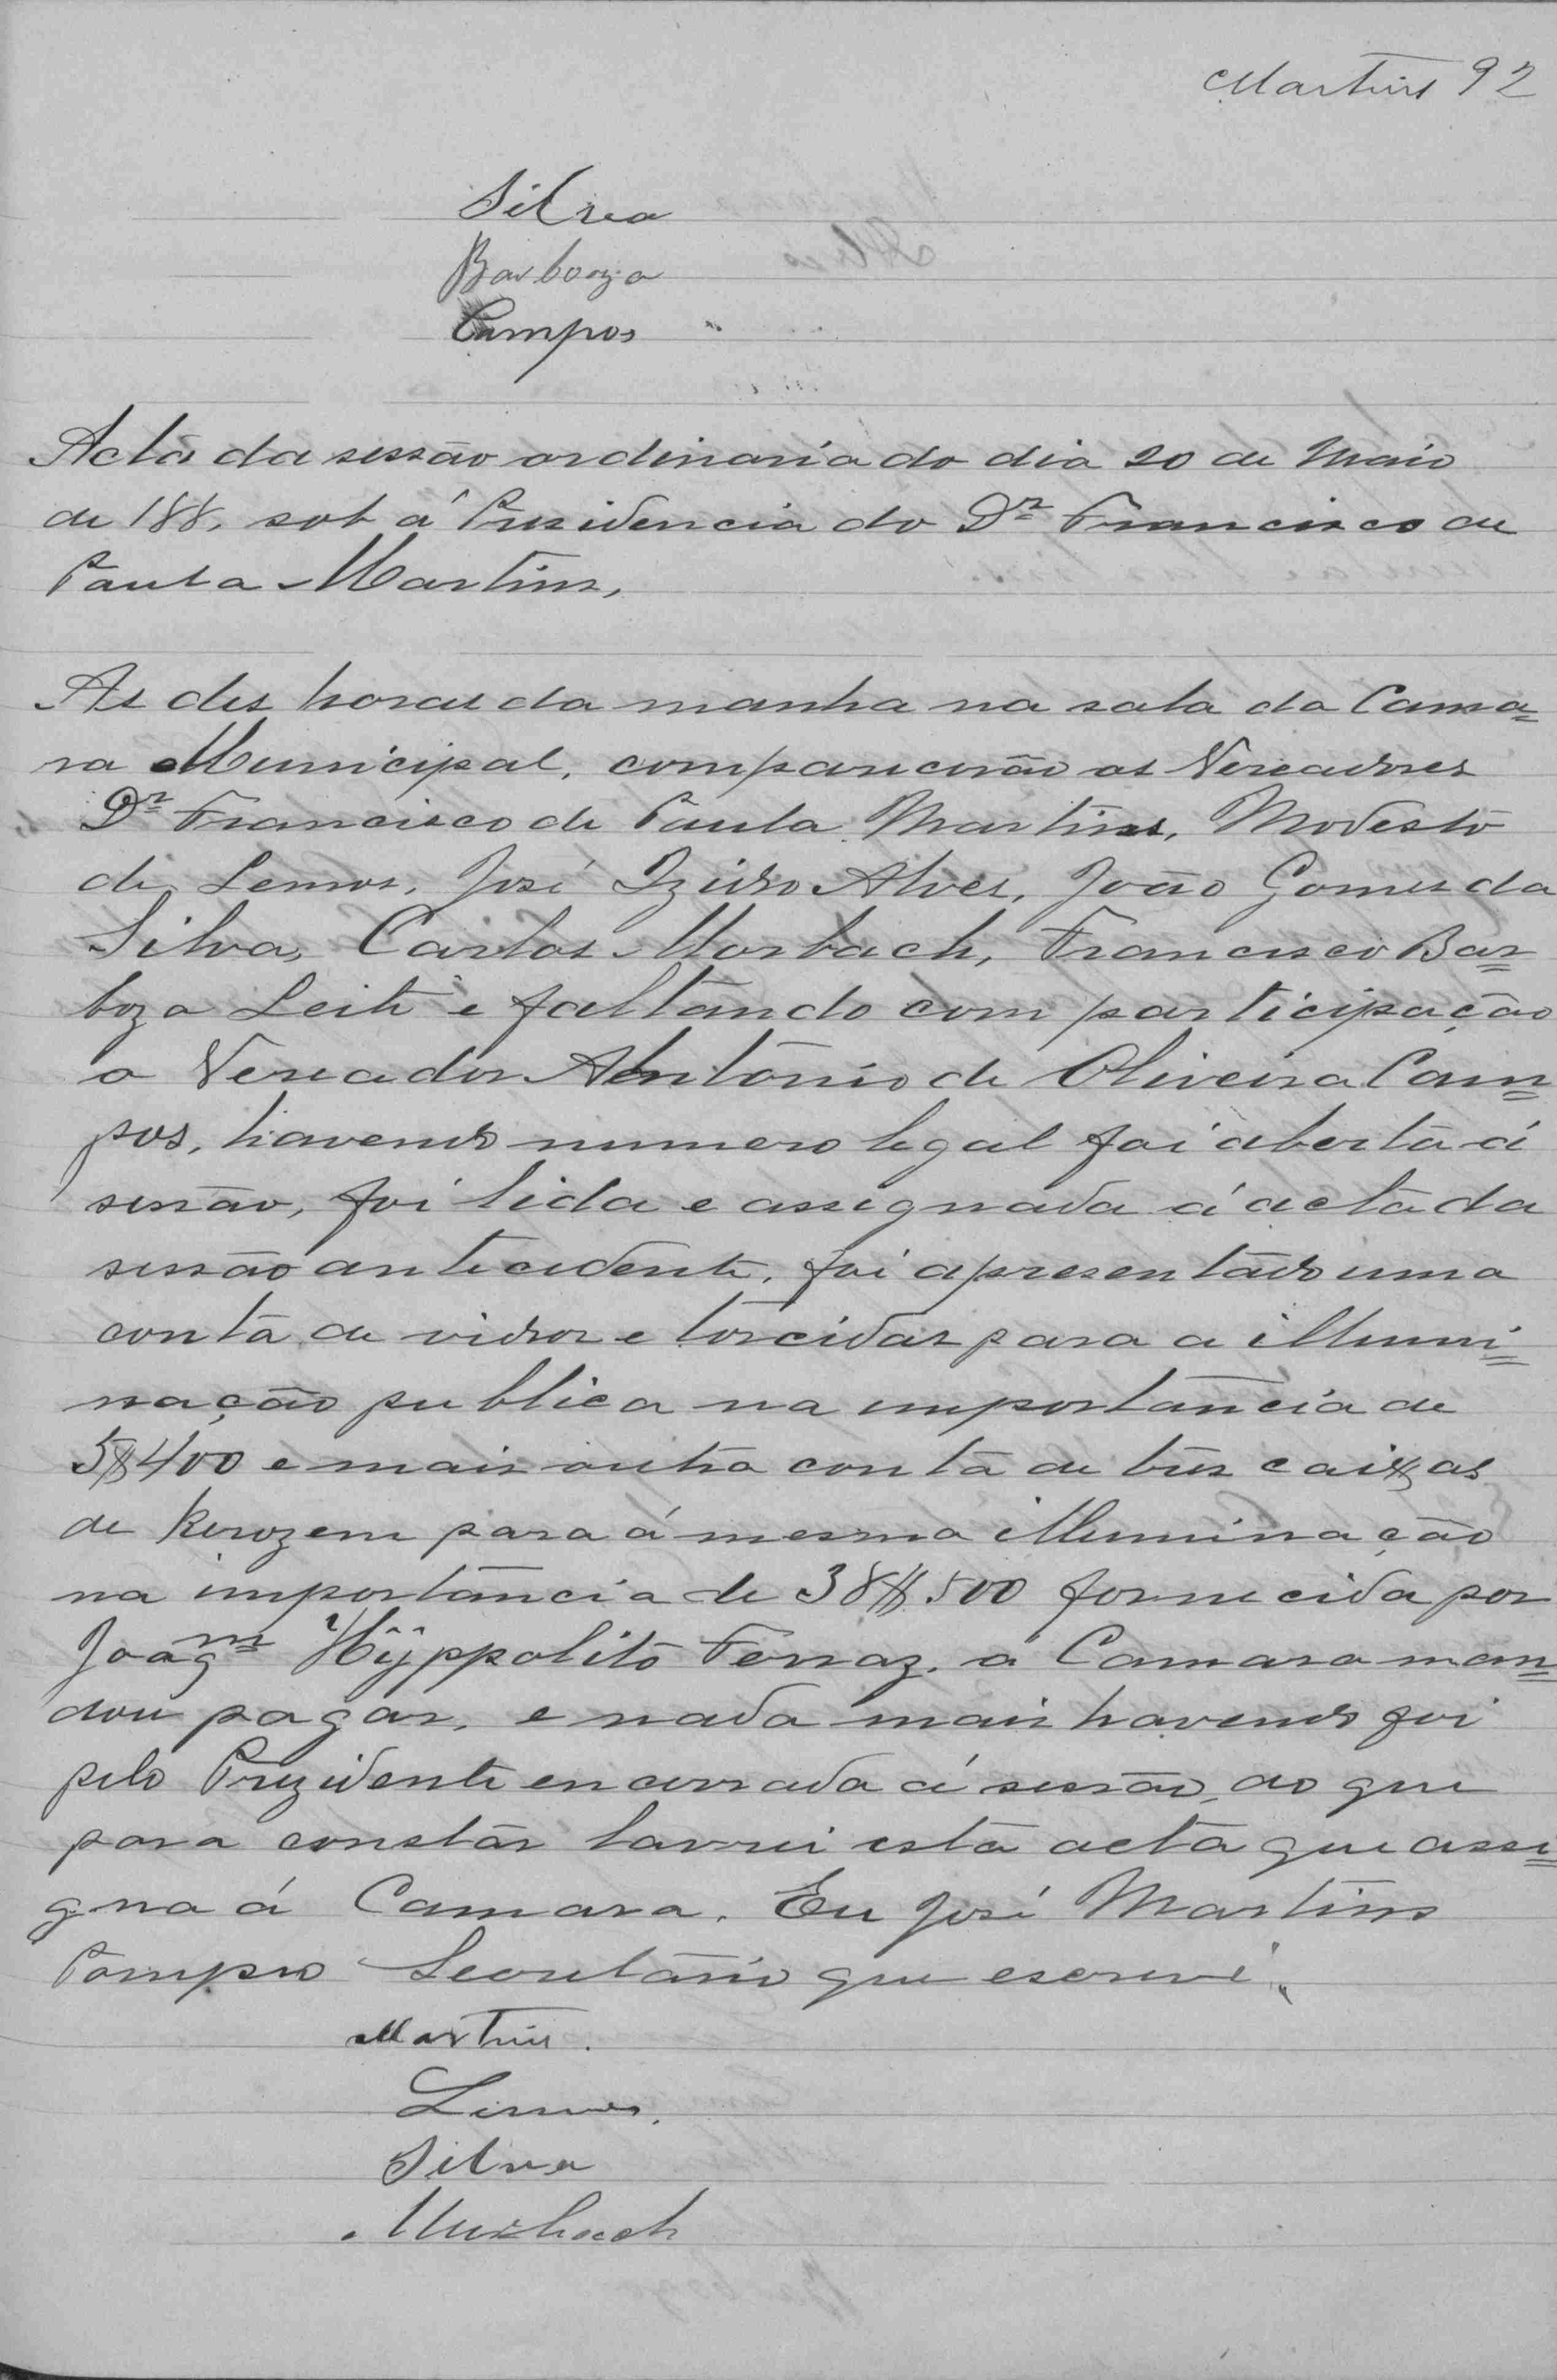 Martins 92
Silva
Barboza
Campos
Acta da sessão ordinaria do dia 20 de Maio
de 188, sob á Presidencia do Dr Francisco de
Paula Martins,
As des horas da manha na sala da Cama=
ra Municipal, comparecerão os Vereadores
Dr Francisco de Paula Martins, Modesto
de Lemos, José Izidro Alves, João Gomes da
Silva, Carlos Morbach, Francisco Bar=
boza Leite e faltando com participação
o Vereador Antonio de Oliveira Cam=
pos, havendo numero legal foi aberta á
sessão, foi lida e assignada á acta da
sessão antecedente, foi apresentado uma
conta de vidros e torcidas para a illumi=
nação publica na importancia de
5$400 e mais outra conta de tres caixas
de kerozem para á mesma illuminação
na importancia de 38$500 fornecida por
Joaqm Hyppolito Ferraz, a Camara man=
dou pagar, e nada mais havendo foi
pelo Prezidente encerrada á sessão, do que
para constar lavrei esta acta que assi=
gna á Camara. Eu José Martins
Pompeo Secretario que escrevi,
Martins.
Lemos.
Silva
Morbach